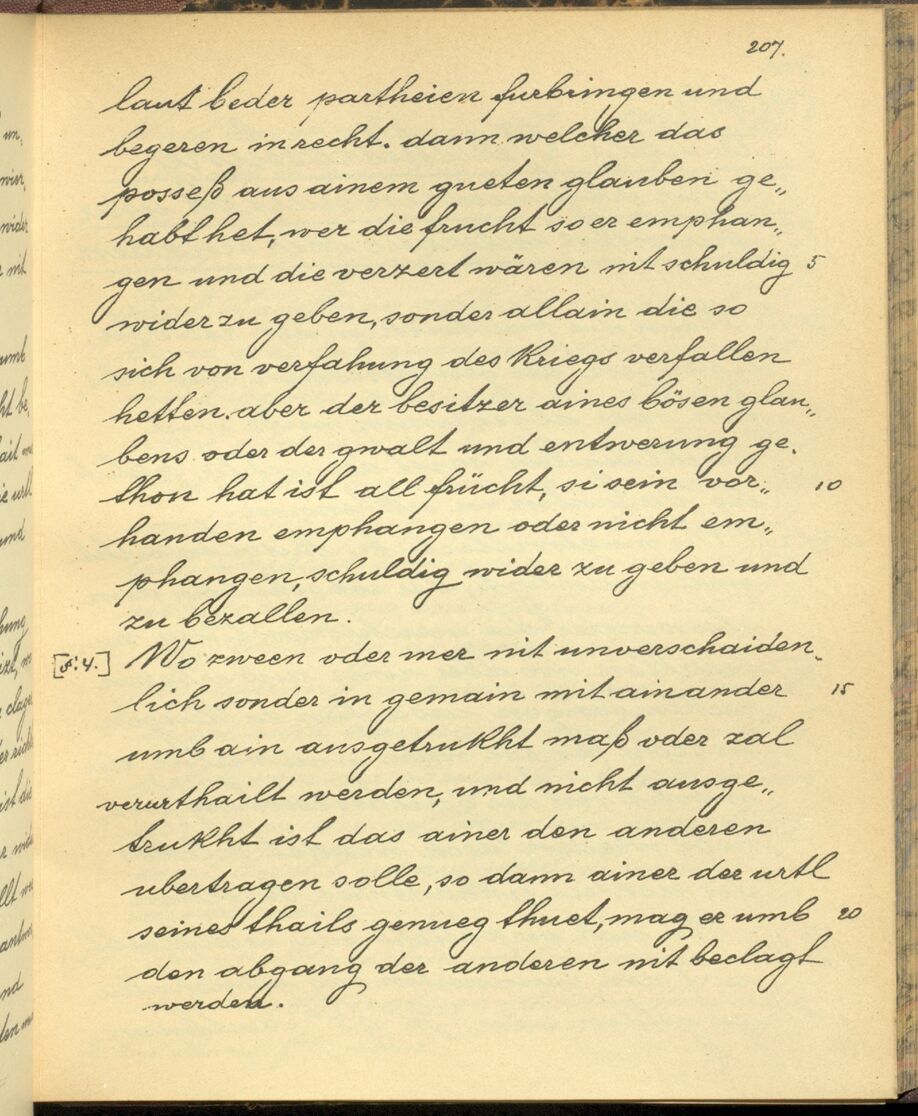 207.
laut beder partheien furbringen und
begeren in recht. dann welcher das
posseß aus ainem gueten glauben ge„
habt het, wer die frucht so er emphan„
gen und die verzert wären nit schuldig 5
wider zu geben, sonder allain die so
sich von verfahung des kriegs verfallen
hetten. aber der besitzer aines bösen glau„
bens oder der gwalt und entwerung ge.
thon hat ist all frücht, si sein vor„ 10
handen emphangen oder nicht em„
phangen, schuldig wider zu geben und
zu bezallen.
[F. 4.] Wo zween oder mer nit unverschaiden„
lich sonder in gemain mit ainander 15
umb ain ausgetrukht maß oder zal
verurthailt werden, und nicht ausge„
trukht ist das ainer den anderen
ubertragen solle, so dann ainer der urtl
seines thails genueg thuet, mag er umb 20
den abgang der anderen nit beclagt
werden.